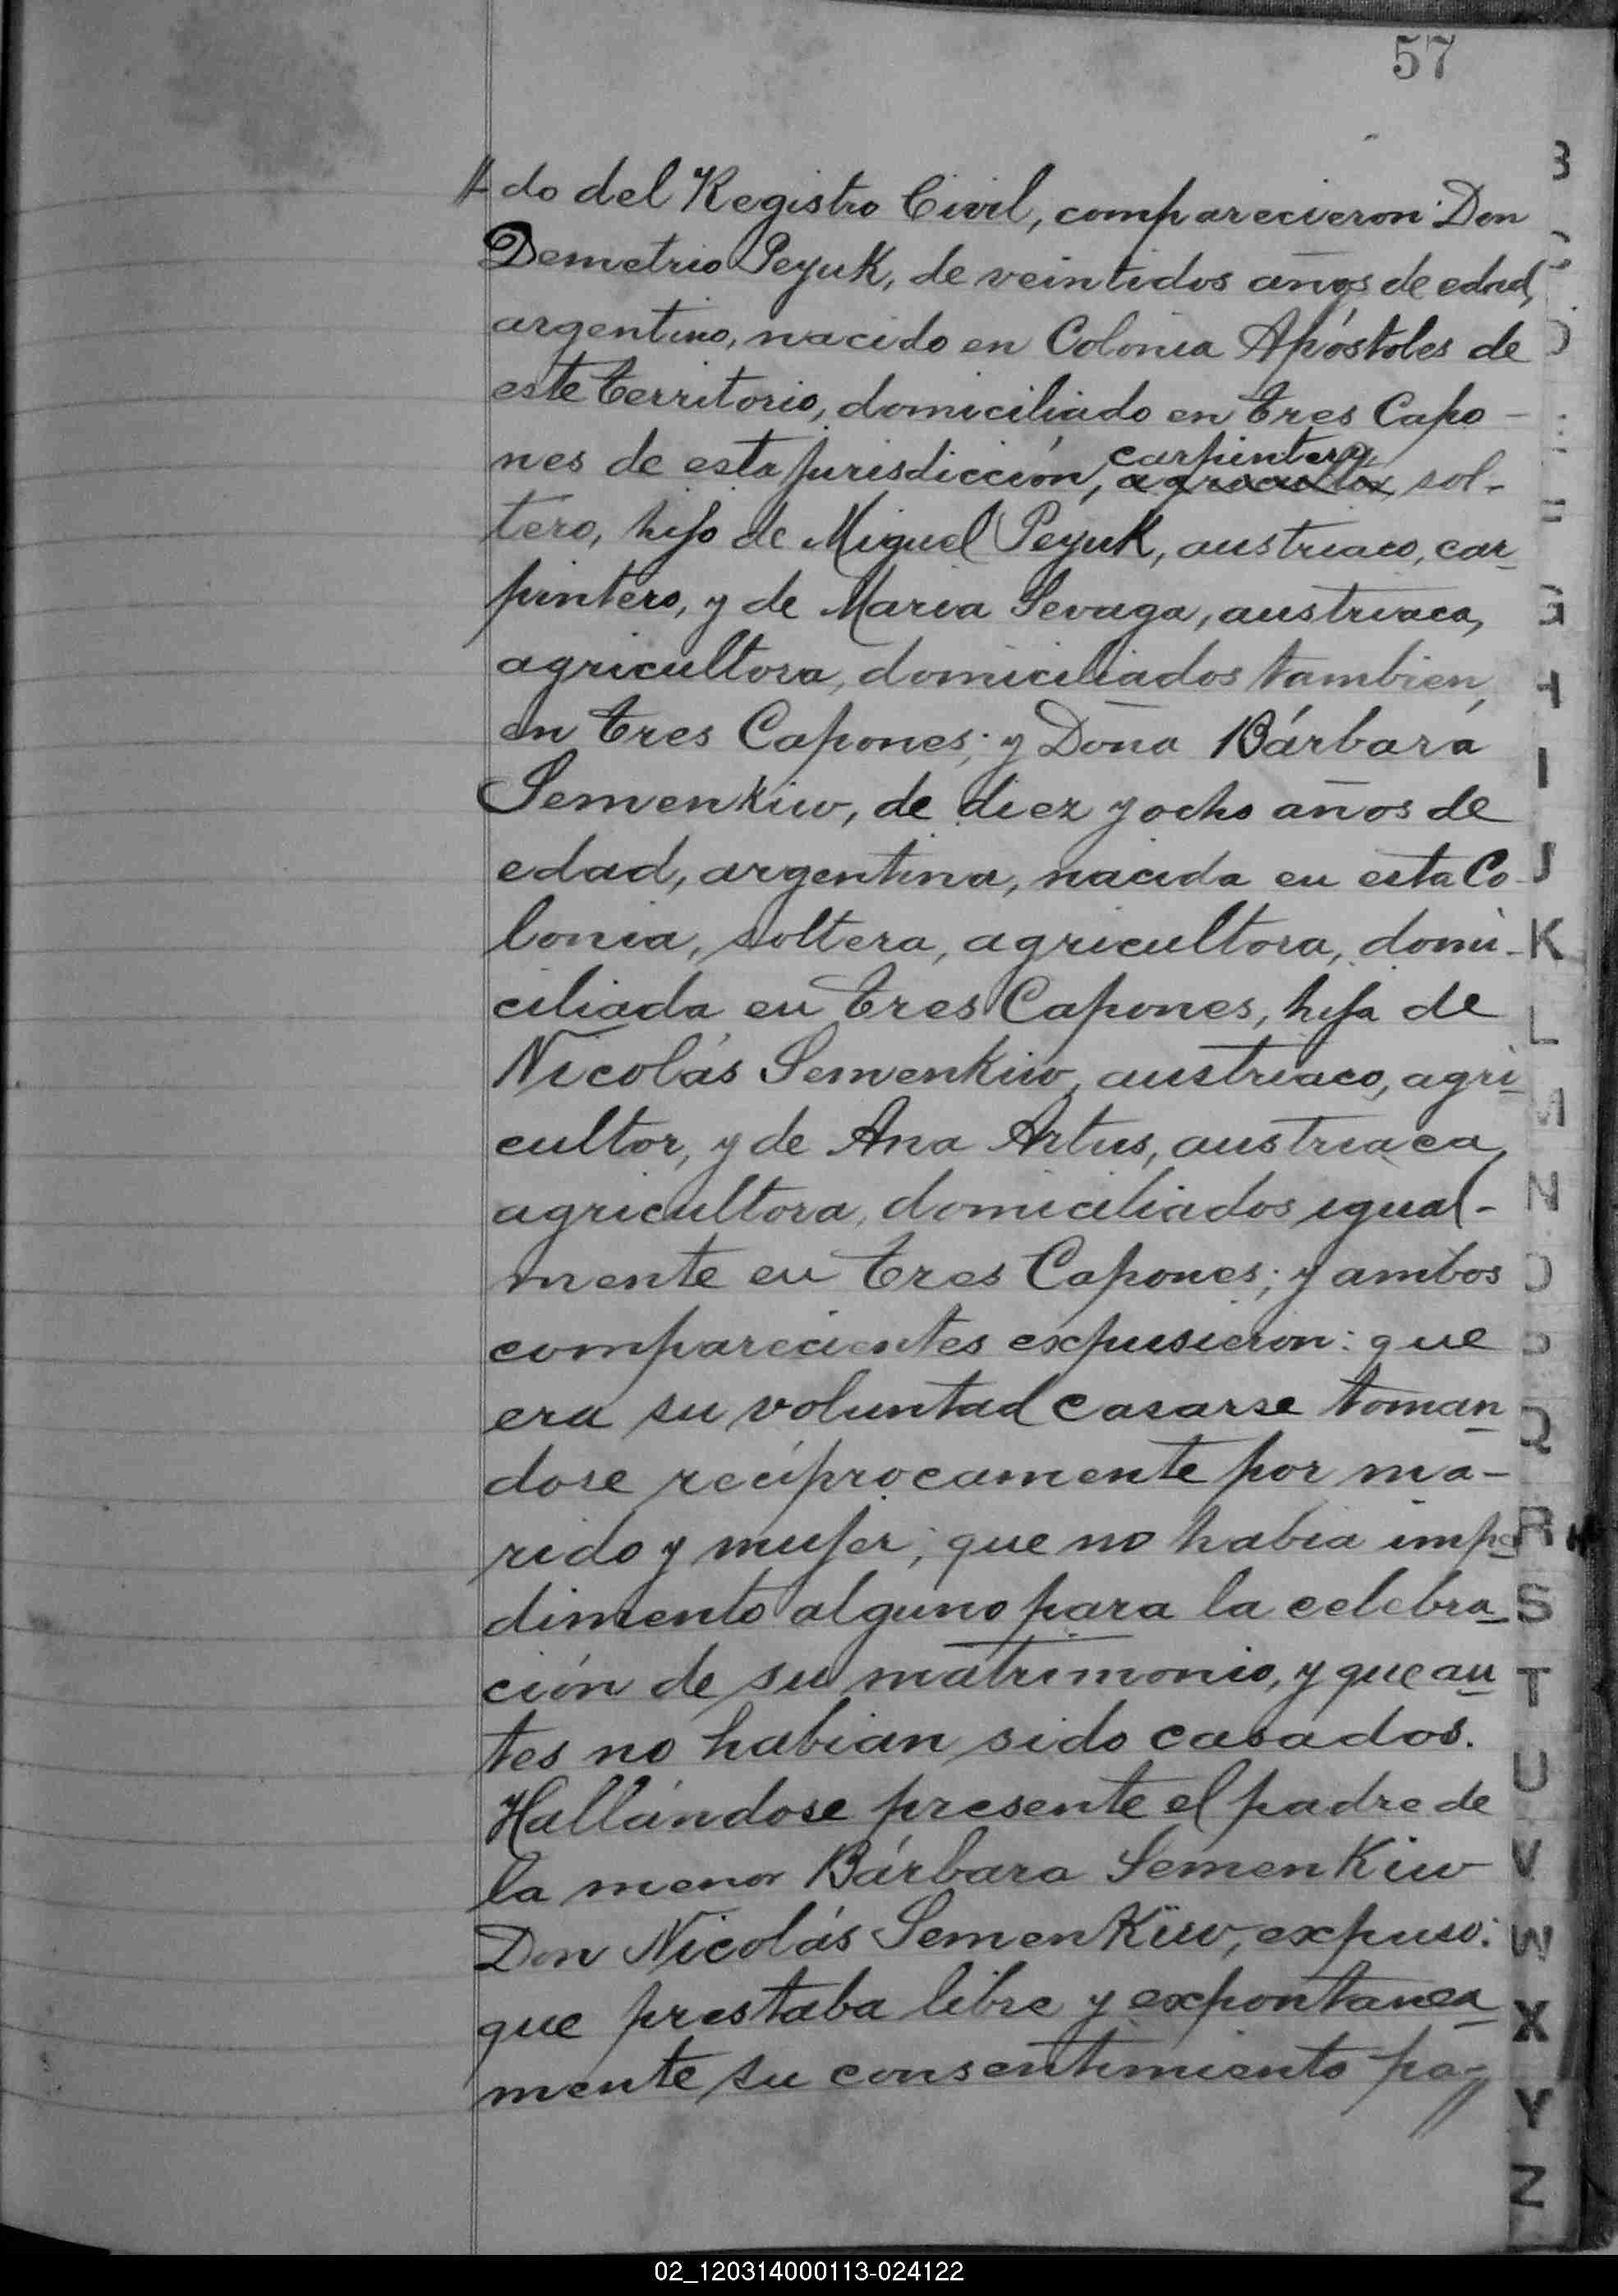 57
//do del Registro Civil, comparecieron Don
Demetrio Peyuk, de veintidos años de edad,
argentino, nacido en Colonia Apóstoles de
este territorio, domiciliado en tres Capo-
nes de esta jurisdicción, carpintero, agricultor, sol-
tero, hijo de Miguel Peyuk, austriaco, car-
pintero, y de Maria Sevaga, austriaca,
agricultora, domiciliados tambien,
en tres Capones; y Doña Bárbara
Semenkiw, de diez y ocho años de
edad, argentina, nacida en esta Co-
lonia, soltera, agricultora, domi-
ciliada en tres Capones, hija de
Nicolás Semenkiw, austriaco, agri-
cultor, y de Ana Artus, austriaca,
agricultora, domiciliados igual-
mente en tres Capones; y ambos
comparecientes expusieron: que
era su voluntad casarse toman-
dose recíprocamente por ma-
rido y mujer; que no habia impe-
dimento alguno para la celebra-
ción de su matrimonio, y que an-
tes no habian sido casados.
Hallándose presente el padre de
la menor Bárbara Semenkiw
Don Nicolás Semenkiw, expuso:
que prestaba libre y expontanea-
mente su consentimiento pa-//
B
C
D
E
F
G
H
I
J
K
L
M
N
O
P
Q
R
S
T
U
V
W
X
Y
Z
02_120314000113-024122